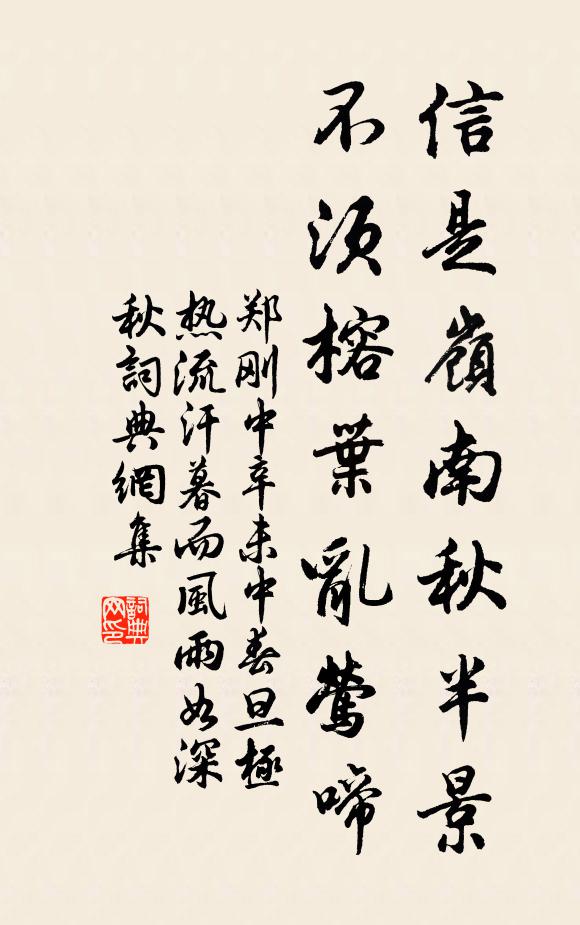 信是嶺南秋半景
不須榕葉亂鶯啼
郑刚中辛未中春旦極
热流汗暮而風雨如深
秋詞典網集
詞典
网印